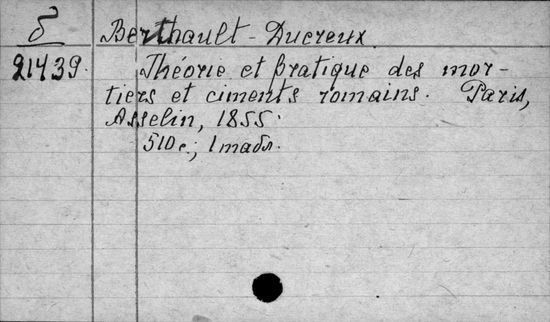 δ Berthault-Ducreux.
21439. Théorie et pratique des mor-
tiers et ciments romains. Paris,
Asselin, 1855.
510 с.; 1 табл.